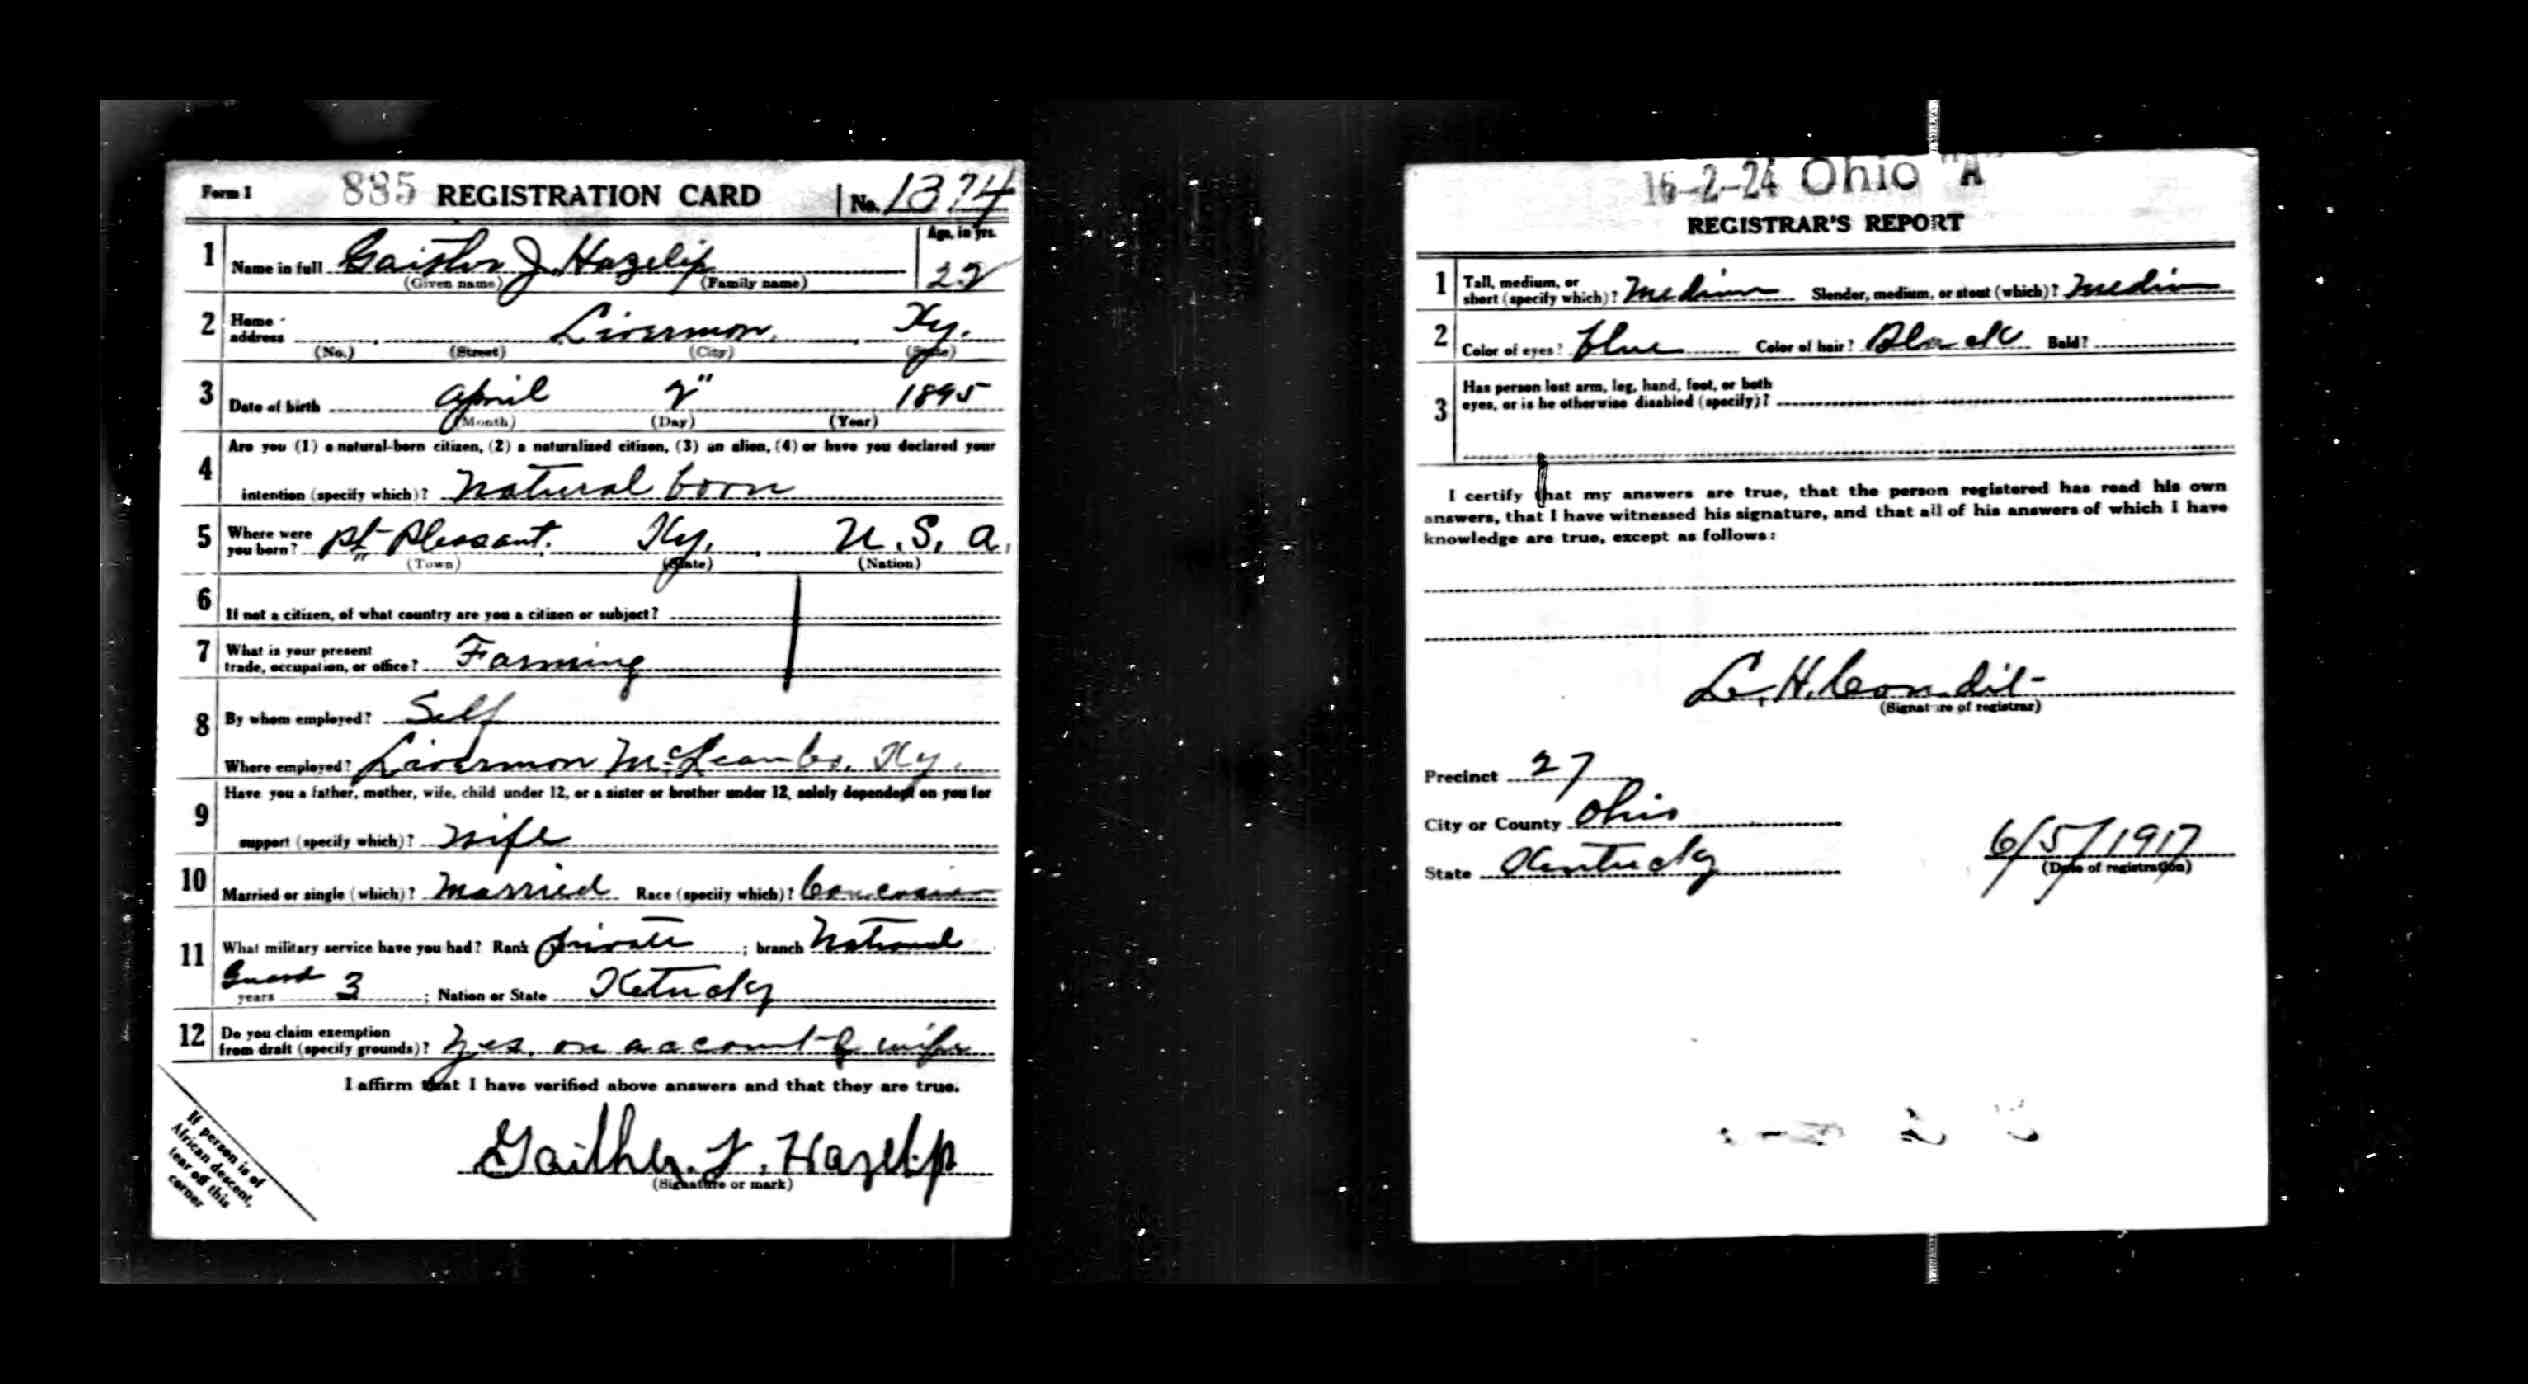 Form 1 835 REGISTRATION CARD No. 1374
Age, in yrs.
1 Name in full Gaither J. Hazelip 22
(Given name) (Family name)
2 Home address Livermon, Ky.
(No.) (Street) (City) (State)
3 Date of birth April 2" 1895
(Month) (Day) (Year)
4 Are you (1) a natural-born citizen, (2) a naturalized citizen, (3) an alien, (4) or have you declared your
intention (specify which)? Natural born
5 Where were you born? Pt Pleasant. Ky. U.S.a.
(Town) (State) (Nation)
6 If not a citizen, of what country are you a citizen or subject?
7 What is your present
trade, occupation, or office? Farming
8 By whom employed? Self
Where employed? Livermon McLean Co. Ky.
9 Have you a father, mother, wife, child under 12, or a sister or brother under 12, solely dependent on you for
support (specify which)? Wife
10 Married or single (which)? Married Race (specify which)? Caucasian
11 What military service have you had? Rank private ; branch National
Guard
years 3 ; Nation or State Ketucky
12 Do you claim exemption
from draft (specify grounds)? Yes, on account of wife
I affirm that I have verified above answers and that they are true.
Gaither. J. Hazelip
(Signature or mark)
If person is of
African descent,
tear off this
corner
16-2-24 Ohio "A"
REGISTRAR'S REPORT
1 Tall, medium, or
short (specify which)? Medium Slender, medium, or stout (which)? Medium
2 Color of eyes? blue Color of hair? Black Bald?
3 Has person lost arm, leg, hand, foot, or both
eyes, or is he otherwise disabled (specify)?
I certify that my answers are true, that the person registered has read his own
answers, that I have witnessed his signature, and that all of his answers of which I have
knowledge are true, except as follows:
C. H. Condit-
(Signature of registrar)
Precinct 27
City or County Ohio
State Kentucky
6/5/1917
(Date of registration)